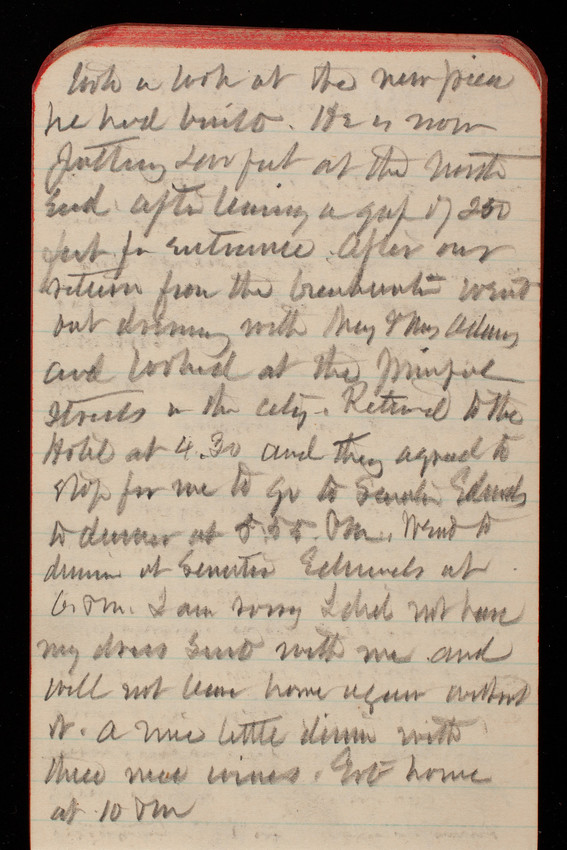 took a look at the new piece
he had built. He is now
putting 200 feet at the North
End after leaving a gap of 250
feet for entrance. After our
return from the breakwater went
out driving with Maj & Mrs Adams
and looked at the principle
streets in the city. Returned to the
Hotel at 4.30 and they agreed to
stop for me to go to Senator Edmunds
to dinner at 5.55. P.m. Went to
dinner at Senator Edmunds at
6. P m. I am sorry I did not have
my dress suit with me and
will not leave home again without
it. A nice little dinner with
three nice wines. Got home
at 10 P m